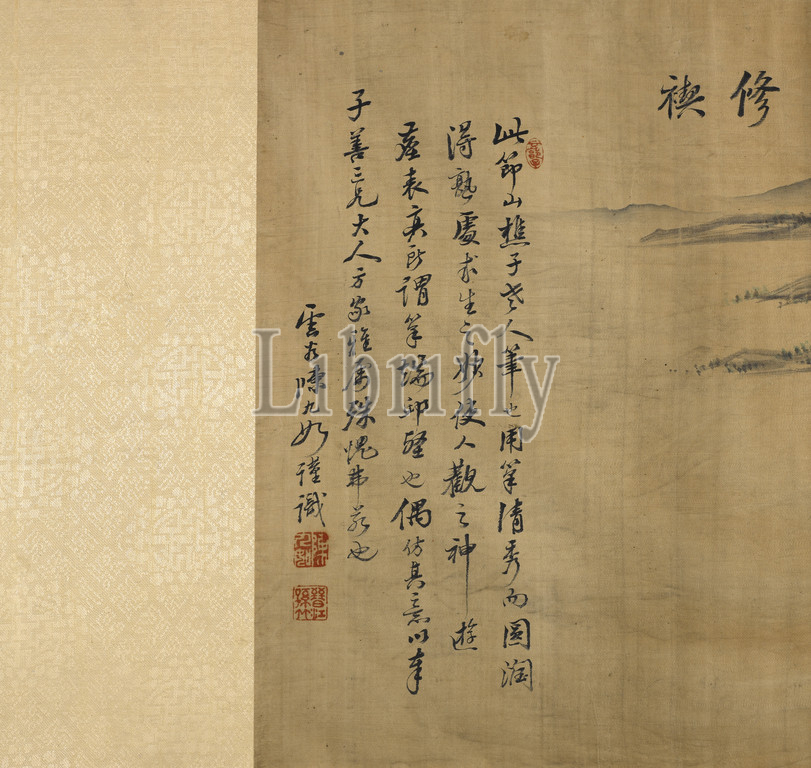 修禊
此節山樵子老人筆也用筆清秀而圓潤
得熟處求生之妙使人觀之神遊
塵表真所謂筆端邱壑也偶仿其意以奉
子善三兄大人方家雖屬殊愧弗若也
雲友陳九如謹識
Librufly